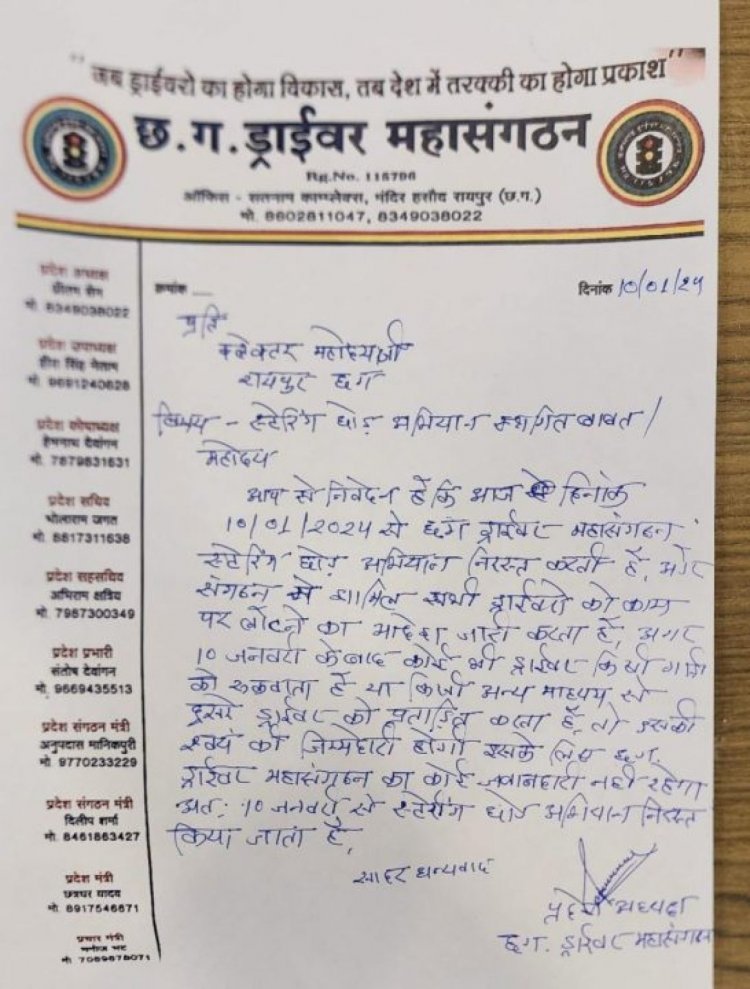 "जब ड्राईवरो का होगा विकास, तब देश में तरक्की का होगा प्रकाश"
छ.ग.ड्राईवर महासंगठन
Rg.No. 115796
ऑफिस - सतनाम काम्प्लेक्स, मंदिर हसौद रायपुर (छ.ग.)
मो. 8602811047, 8349038022
प्रदेश अध्यक्ष
प्रीतम सेन
मो. 8349038022
प्रदेश उपाध्यक्ष
हीरा सिंह नेताम
मो. 9691240628
प्रदेश कोषाध्यक्ष
हेमनाथ देवांगन
मो. 7879831631
प्रदेश सचिव
भोलाराम जगत
मो. 8817311638
प्रदेश सहसचिव
अभिराम क्षत्रिय
मो. 7987300349
प्रदेश प्रभारी
संतोष देवांगन
मो. 9669435513
प्रदेश संगठन मंत्री
अनुपदास मानिकपुरी
मो. 9770233229
प्रदेश संगठन मंत्री
दिलीप शर्मा
मो. 8461863427
प्रदेश मंत्री
छत्रधर यादव
मो. 8917546671
प्रचार मंत्री
मनोज भट
मो. 7089678071
क्रमांक ....
दिनांक 10/01/24
प्रति
कलेक्टर महोदय श्री
रायपुर छग
विषय - स्टेरिंग छोड़ अभियान स्थगित बावत।
महोदय
आप से निवेदन है कि आज दिनांक
10/01/2024 से छग ड्राईवर महासंगठन
स्टेरिंग छोड़ अभियान निरस्त करती है, और
संगठन में शामिल सभी ड्राईवरो को काम
पर लौटने का आदेश जारी करता है, अगर
10 जनवरी के बाद कोई भी ड्राईवर किसी गाड़ी
को रुकवाता है या किसी अन्य माध्यम से
दुसरे ड्राईवर को प्रताड़ित करता है, तो उसकी
स्वयं की जिम्मेदारी होगी इसके लिए छग.
ड्राईवर महासंगठन का कोई जवाबदारी नही रहेगा
अत: 10 जनवरी से स्टेरिंग छोड़ अभियान निरस्त
किया जाता है,
सादर धन्यवाद
प्रदेश अध्यक्ष
छग. ड्राईवर महासंगठन